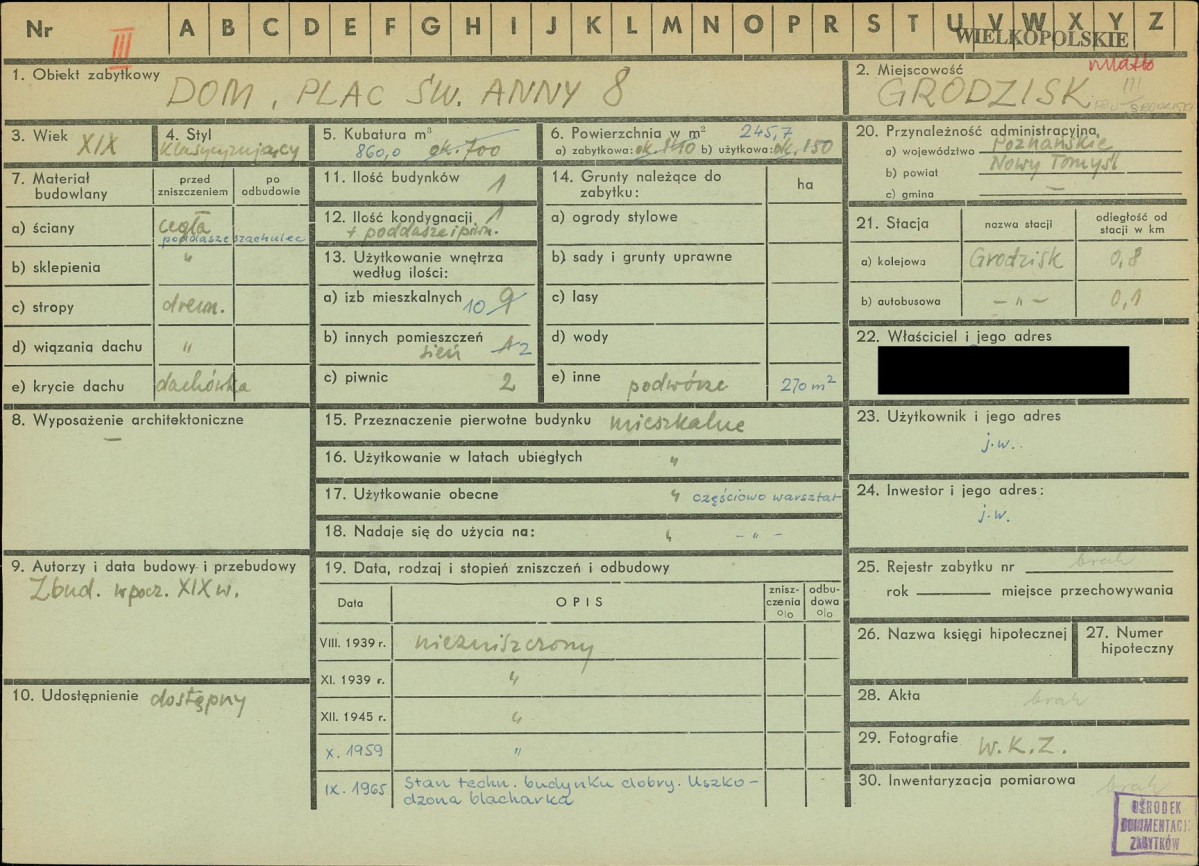 Nr III A B C D E F G H I J K L M N O P R S T U V W X Y Z
WIELKOPOLSKIE
1. Obiekt zabytkowy DOM, PLAC ŚW. ANNY 8
2. Miejscowość miasto III
GRODZISK
3. Wiek XIX
4. Styl klasycyzujący
5. Kubatura m³ 860,0 ok. 700
6. Powierzchnia w m² 245,7
a) zabytkowa: ok. b) użytkowa: ok. 150
20. Przynależność administracyjna
a) województwo Poznańskie
b) powiat Nowy Tomyśl
c) gmina —
7. Materiał budowlany
przed zniszczeniem
po odbudowie
a) ściany cegła
poddasze szachulec
b) sklepienia "
c) stropy drewn.
d) wiązania dachu "
e) krycie dachu dachówka
11. Ilość budynków 1
12. Ilość kondygnacji 1
+ poddasze i piwn.
13. Użytkowanie wnętrza
według ilości:
a) izb mieszkalnych 10 9
b) innych pomieszczeń 1 2
sień
c) piwnic 2
14. Grunty należące do
zabytku:
ha
a) ogrody stylowe
b) sady i grunty uprawne
c) lasy
d) wody
e) inne podwórze 270 m²
21. Stacja
nazwa stacji
odległość od
stacji w km
a) kolejowa Grodzisk 0,8
b) autobusowa — " — 0,1
22. Właściciel i jego adres
8. Wyposażenie architektoniczne
—
15. Przeznaczenie pierwotne budynku mieszkalne
16. Użytkowanie w latach ubiegłych "
17. Użytkowanie obecne " częściowo warsztat
18. Nadaje się do użycia na: " - " -
23. Użytkownik i jego adres
j.w.
24. Inwestor i jego adres:
j.w.
9. Autorzy i data budowy i przebudowy
Zbud. w pocz. XIX w.
10. Udostępnienie dostępny
19. Data, rodzaj i stopień zniszczeń i odbudowy
Data
OPIS
znisz-
czenia
o|o
odbu-
dowa
o|o
VIII. 1939 r. niezniszczony
XI. 1939 r. "
XII. 1945 r. "
X. 1959 "
IX. 1965 Stan techn. budynku dobry. Uszko-
dzona blacharka
25. Rejestr zabytku nr brak
rok miejsce przechowywania
26. Nazwa księgi hipotecznej
27. Numer
hipoteczny
28. Akta brak
29. Fotografie W.K.Z.
30. Inwentaryzacja pomiarowa brak
OŚRODEK
DOKUMENTACJI
ZABYTKÓW